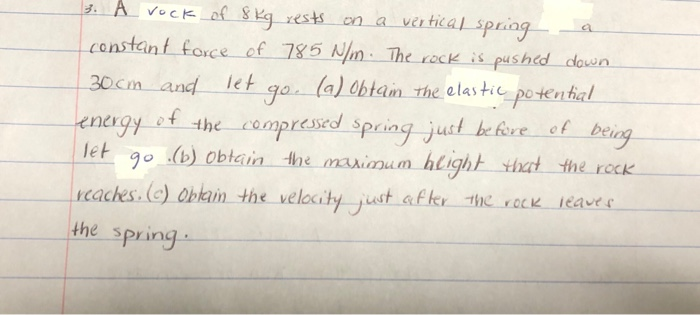 3. A rock of 8 kg rests on a vertical spring a
constant force of 785 N/m. The rock is pushed down
30cm and let go. (a) Obtain the elastic potential
energy of the compressed spring just before of being
let go. (b) Obtain the maximum height that the rock
reaches. (c) Obtain the velocity just after the rock leaves
the spring.